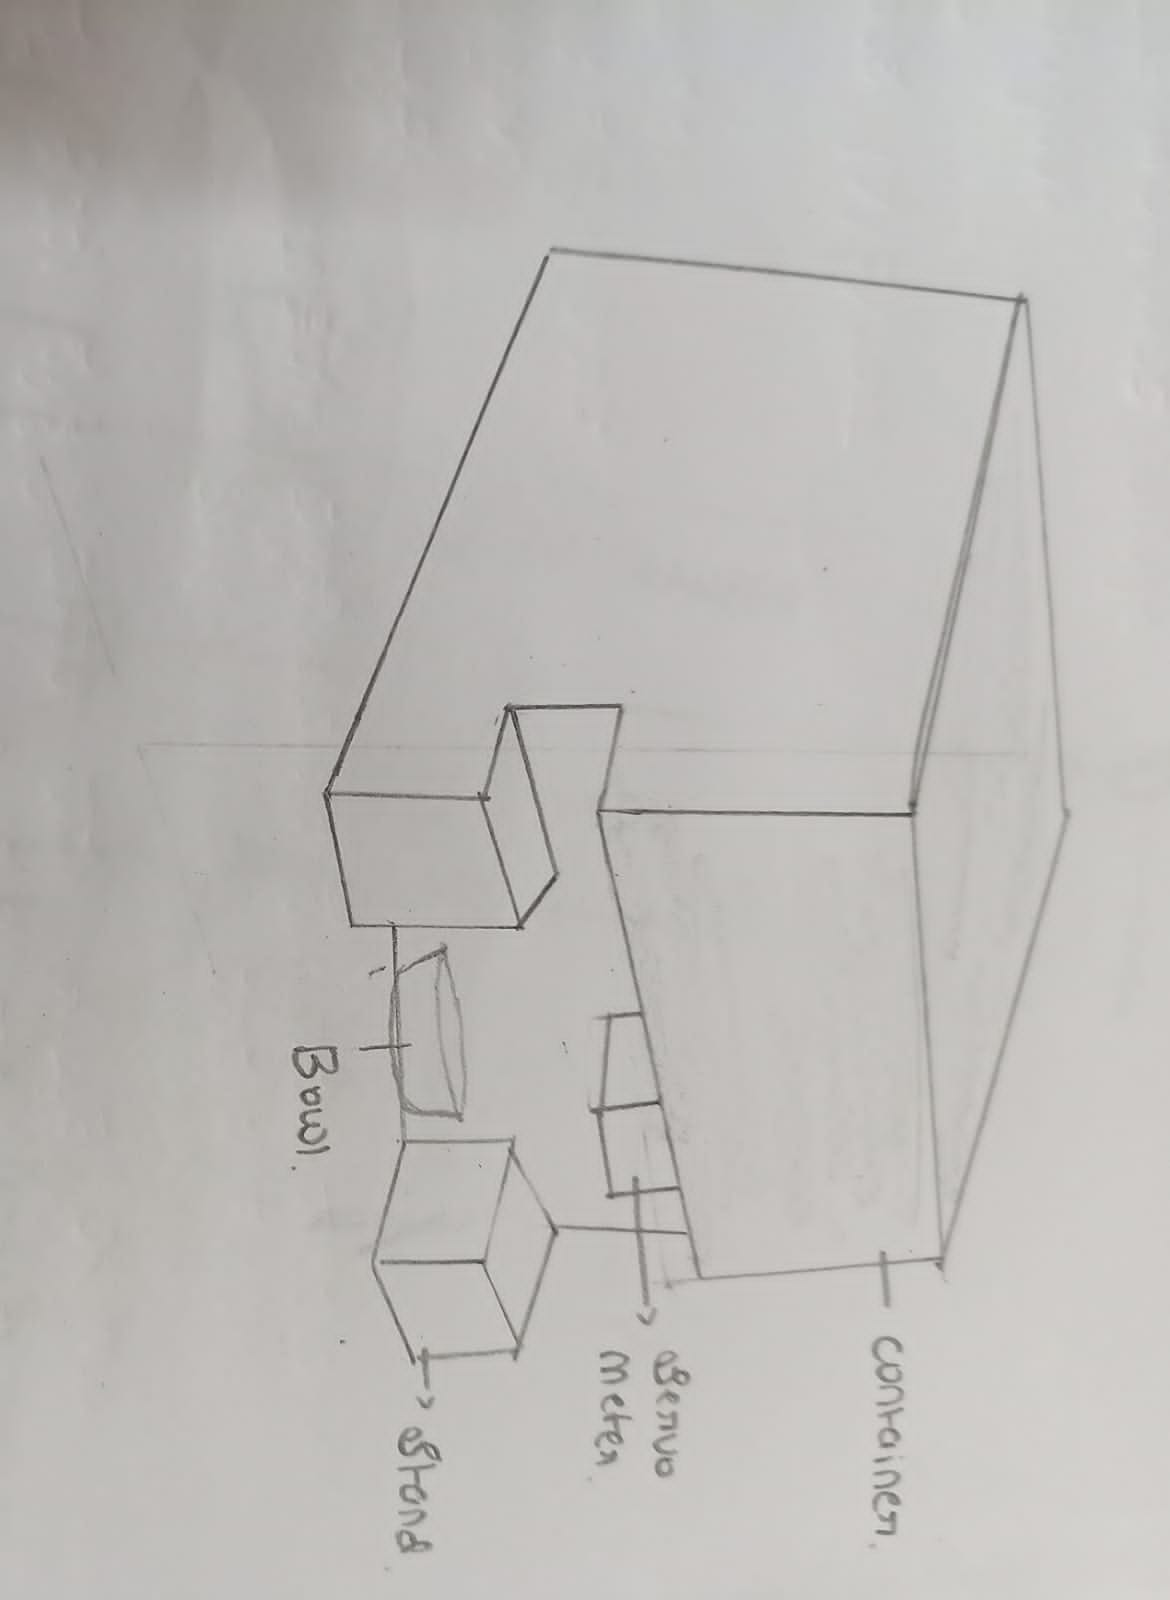 container.
servo
meter.
stand
Bowl.